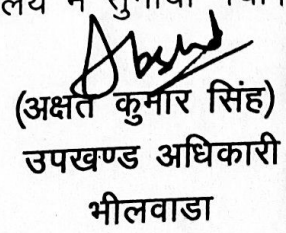 (अक्षत कुमार सिंह)
उपखण्ड अधिकारी
भीलवाडा